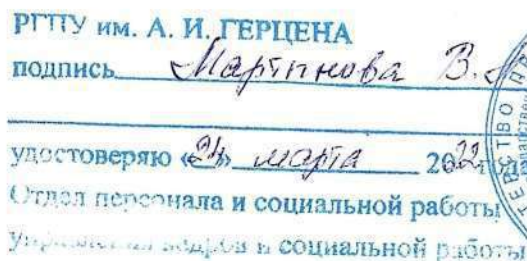 РГПУ им. А. И. ГЕРЦЕНА
подпись Мартинова В.
удостоверяю «24» марта 2022 года
Отдел персонала и социальной работы
управления кадров и социальной работы